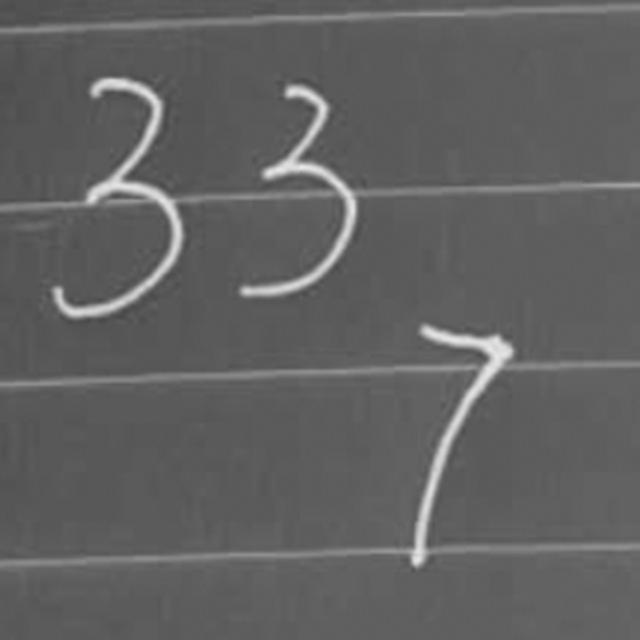 33
7